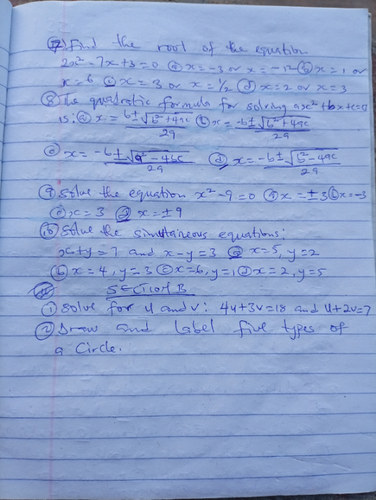 ⑦ Find the root of the equation
2x² - 7x + 3 = 0 ⓐ x = -3 or x = -½ ⓑ x = 1 or
x = 6 ⓒ x = 3 or x = ½ ⓓ x = 2 or x = 3
⑧ The quadratic formula for solving ax² + bx + c = 0
is: ⓐ x = b ± √b² + 4ac / 2a ⓑ x = -b ± √b² + 4ac / 2a
ⓒ x = -b ± √a² - 4bc / 2a ⓓ x = -b ± √b² - 4ac / 2a
⑨ Solve the equation x² - 9 = 0 ⓐ x = ± 3 ⓑ x = -3
ⓒ x = 3 ⓓ x = ± 9
⑩ Solve the simultaneous equations:
x + y = 7 and x - y = 3 ⓐ x = 5, y = 2
ⓑ x = 4, y = 3 ⓒ x = 6, y = 1 ⓓ x = 2, y = 5
SECTION B
① Solve for u and v: 4u + 3v = 18 and u + 2v = 7
② Draw and label five types of
a Circle.